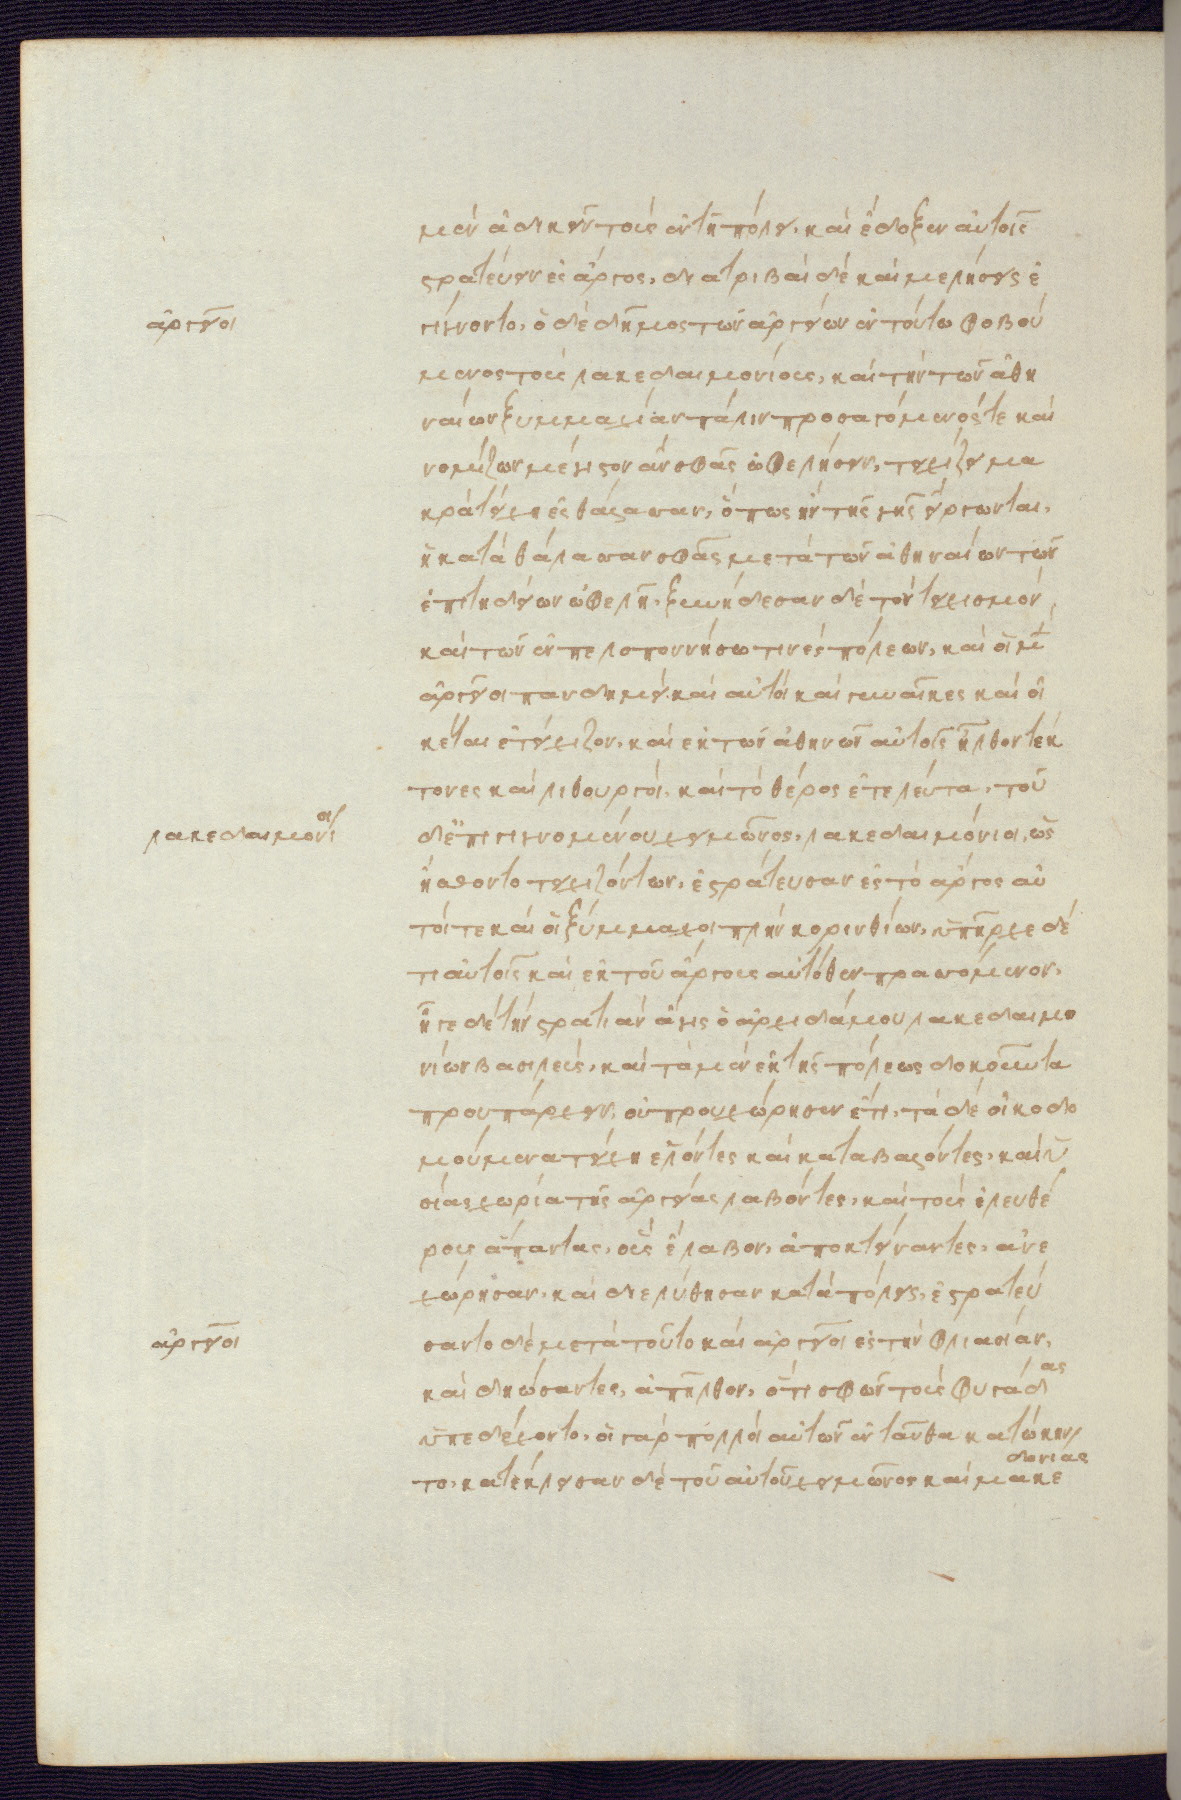 μὲν ἀδικεῖν τοὺς ἐν τῆ πόλει, καὶ ἔδοξεν αὐτοῖς
στρατεύειν ἐς ἄργος, διατριβαὶ δὲ καὶ μελήσεις ἐ
ἀργεῖοι
γίγνοντο, ὁ δὲ δῆμος τῶν ἀργείων ἐν τούτω φοβού
μενος τοὺς λακεδαιμονίους, καὶ τὴν τῶν ἀθη
ναίων ξυμμαχίαν πάλιν προσαγόμενός τε καὶ
νομίζων μέγιστον ἂν σφᾶς ὠφελήσειν, τειχίζει μα
κρὰ τείχη ἐς θάλασσαν, ὅπως ἢν τῆς γῆς εἴργωνται,
ἡ κατὰ θάλασσαν σφᾶς μετὰ τῶν ἀθηναίων τῶν
ἐπιτηδείων ὠφελῆ, ξυνήδεσαν δὲ τὸν τειχισμόν
καὶ τῶν ἐν πελοποννήσω τινὲς πόλεων, καὶ οἱ μὲν
ἀργεῖοι πανδημεὶ καὶ αὐτοὶ καὶ γυναῖκες καὶ οἱ
κέται ἐτείχιζον, καὶ ἐκ τῶν ἀθηνῶν αὐτοῖς ἦλθον τέκ
τονες καὶ λιθουργοί, καὶ τὸ θέρος ἐτελεύτα, τοῦ
λακεδαιμόνιοι
δ' ἐπιγιγνομένου χειμῶνος, λακεδαιμόνιοι, ὡς
ἤσθοντο τειχιζόντων, ἐστράτευσαν ἐς τὸ ἄργος αὐ
τοί τε καὶ οἱ ξύμμαχοι πλὴν κορινθίων, ὑπῆρχε δέ
τι αὐτοῖς καὶ ἐκ τοῦ ἄργους αὐτόθεν πρασσόμενον,
ἦγε δὲ τὴν στρατιὰν ἄγις ὁ ἀρχιδάμου λακεδαιμο
νίων βασιλεύς, καὶ τὰ μὲν ἐκ τῆς πόλεως δοκοῦντα
προυπάρχειν, οὐ προυχώρησεν ἔτι, τὰ δὲ οἰκοδο
μούμενα τείχη ἑλόντες καὶ καταβαλόντες, καὶ ὑ
σίας χωρία τῆς ἀργείας λαβόντες, καὶ τοὺς ἐλευθέ
ρους ἅπαντας, οὓς ἔλαβον, ἀποκτείναντες, ἀνε
χώρησαν, καὶ διελύθησαν κατὰ πόλεις, ἐστρατεύ
ἀργεῖοι
σαντο δὲ μετὰ τοῦτο καὶ ἀργεῖοι ἐς τὴν φλιασίαν,
καὶ δηώσαντες, ἀπῆλθον, ὅτι σφῶν τοὺς φυγάδας
ὑπεδέχοντο, οἱ γὰρ πολλοὶ αὐτῶν ἐνταῦθα κατώκην
το, κατέκλεισαν δὲ τοῦ αὐτοῦ χειμῶνος καὶ μακεδονίας